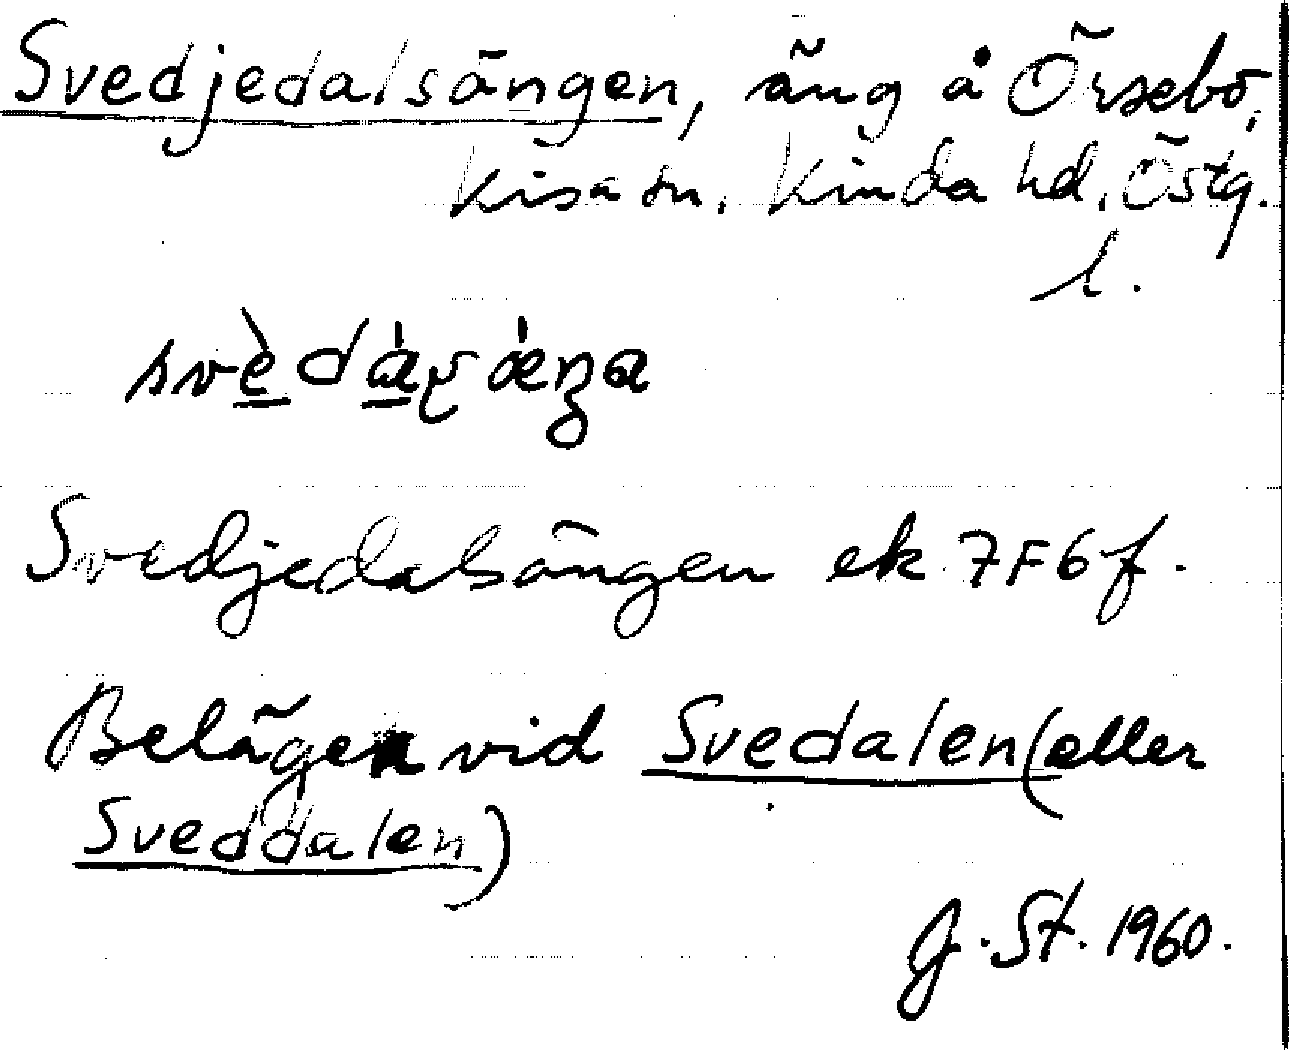 Svedjedalsängen, äng å Örsebo,
Kisa sn. Kinda hd. Östg.
l.
Svedjedalsängen ek 7F6f.
Belägen vid Svedalen (eller
Sveddalen)
G. St. 1960.